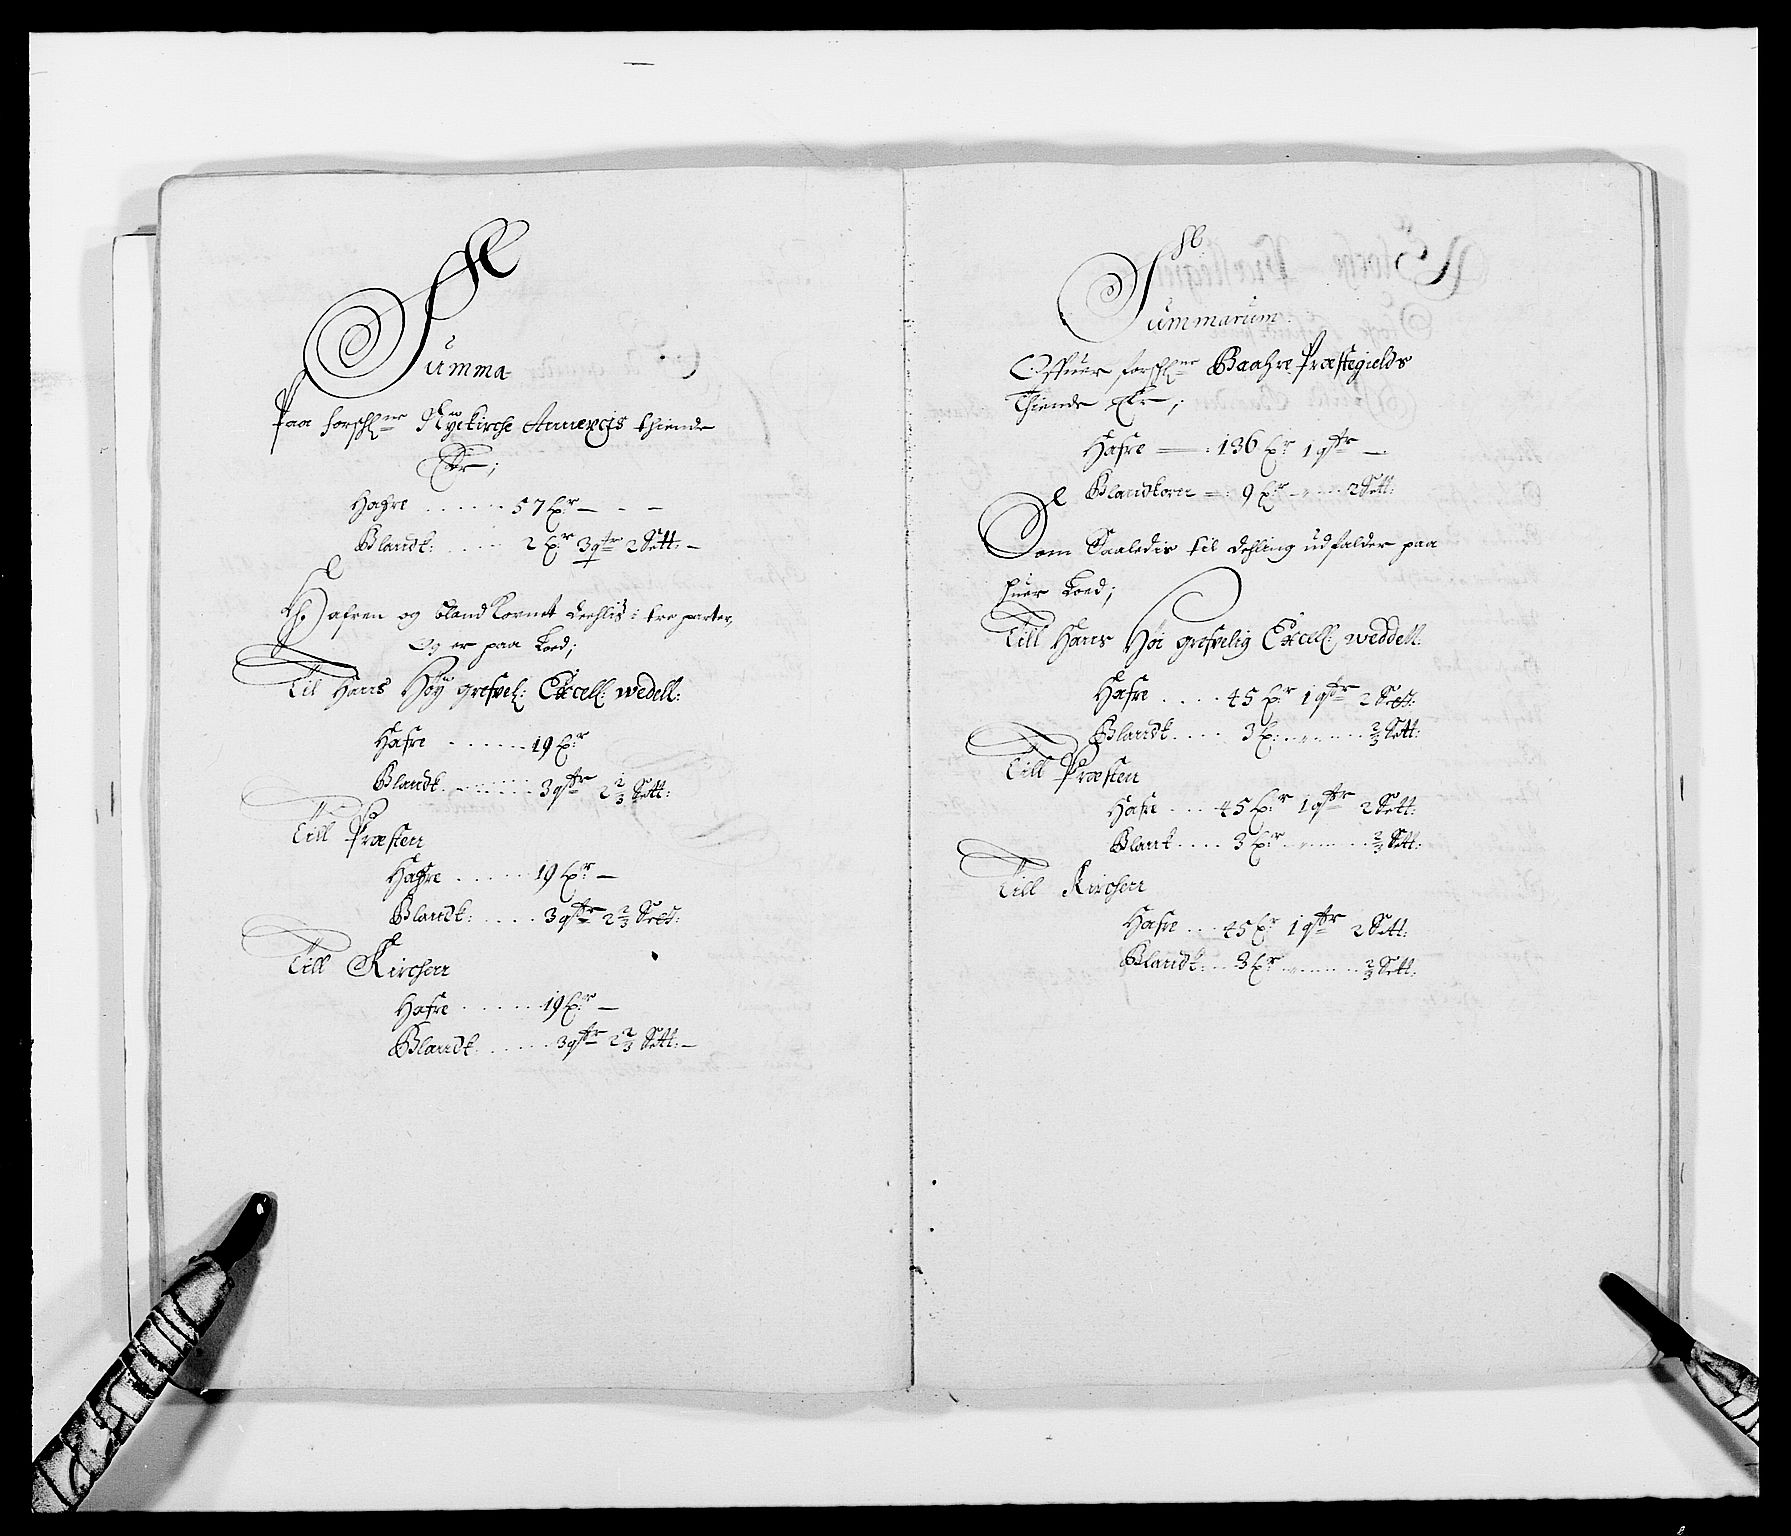 Summa
Paa forschr:ne Nyekirche Annexis thiende
Er;
Hafre ...... 57 tr — - —
Blandk: ..... 2 tr 3 qtr 2 Sett: —
Hafren og bland kornet deehlis i tre parter,
Og er paa Loed;
Til Hans Höy grefvel: Excell: Wedell:
Hafre ...... 19 tr
Blandk ...... 3 qtr 2 2/3 Sett:
Till Præsten
Hafre ..... 19 tr —
Blandk: .... 3 qtr 2 2/3 Sett:
Till Kirchen
Hafre ...... 19 tr —
Blandk ...... 3 qtr 2 2/3 Sett: —
Summarum
Offuer forschr:ne Baahre Præstegields
Thiende Er;
Hafre — : 136 tr 1 qtr —
Blandkorn — : 9 tr ..... 2 Sett:
Som Saaledis til dehling udfalder paa
huer Loed;
Till Hans Höi grefvelig Excell: Weddell:
Hafre .... 45 tr 1 qtr 2 Sett:
Blandk .... 3 t: ..... 2/3 Sett:
Till Præsten
Hafre ... 45 tr 1 qtr 2 Sett:
Blank .... 3 tr ...... 2/3 Sett:
Till Kirchen
Hafre ... 45 tr 1 qtr 2 Sett:
Blandk: .. 3 tr ...... 2/3 Sett: